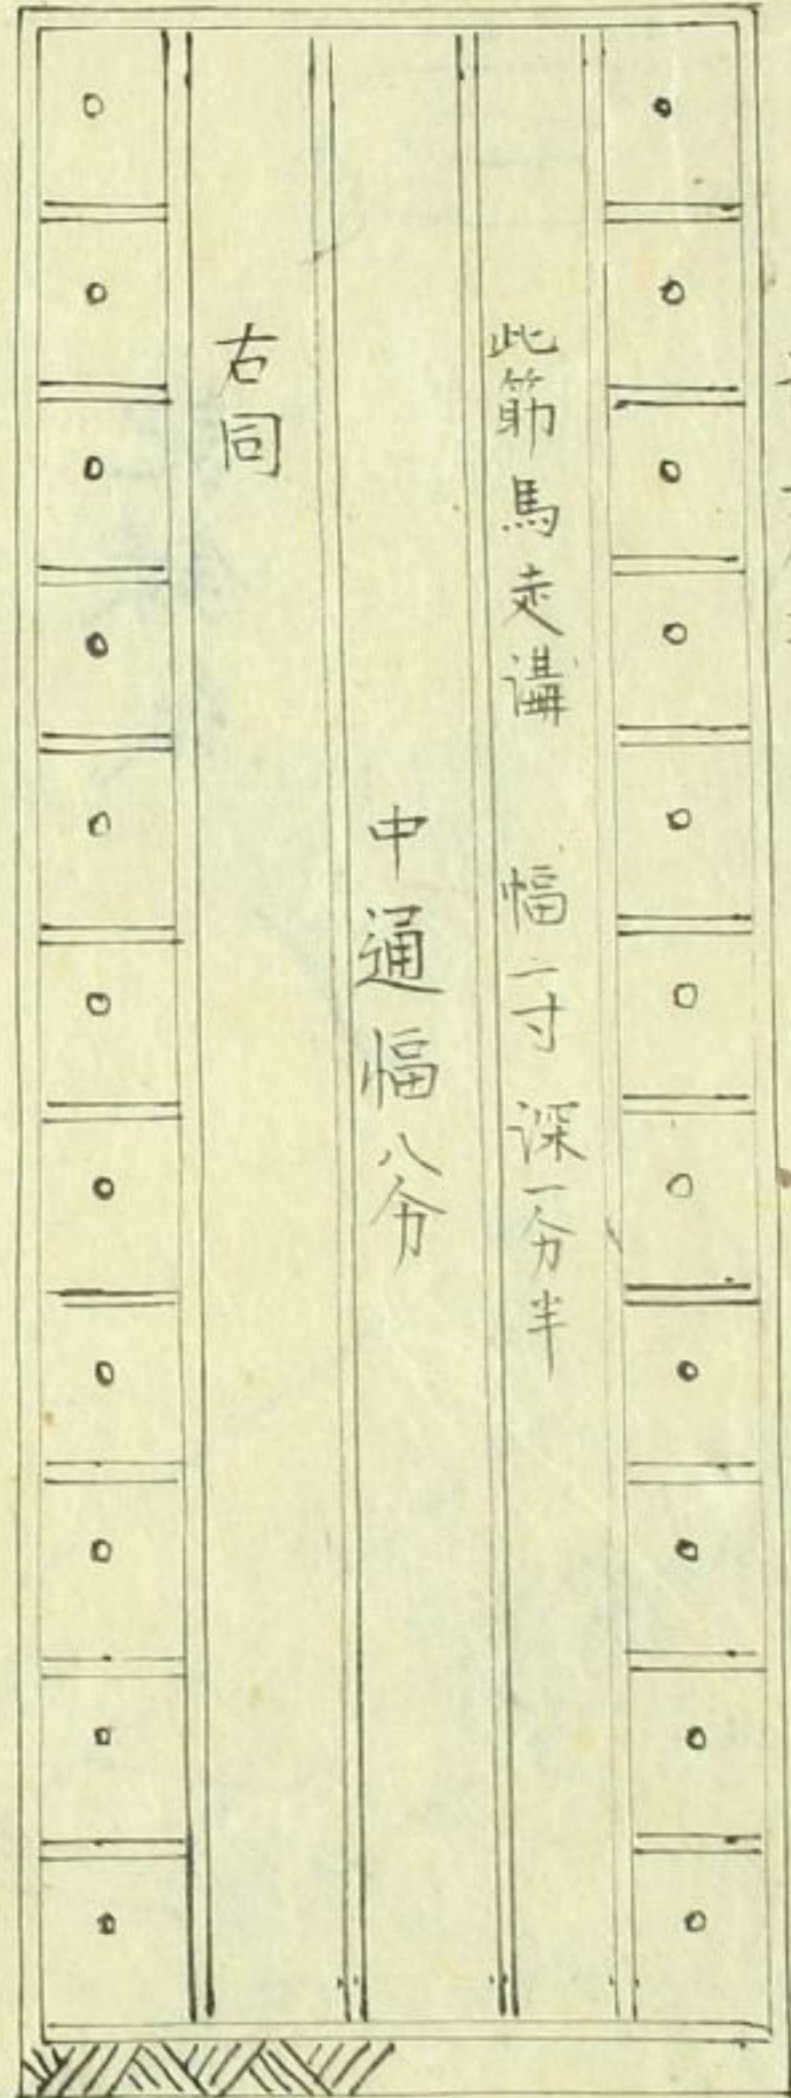 此筋馬走溝 幅二寸 深一分半
中通幅八分
右同